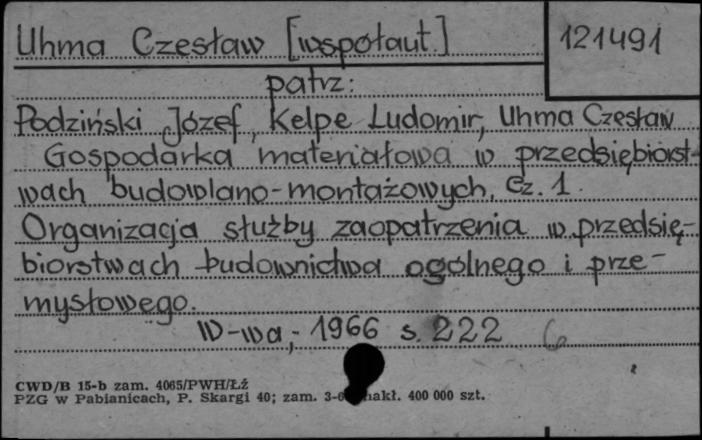 Uhma Czesław [współaut.] 121491
patrz:
Podziński Józef, Kelpe Ludomir, Uhma Czesław
Gospodarka materiałowa w przedsiębiorst-
wach budowlano-montażowych. Cz. 1.
Organizacja służby zaopatrzenia w przedsię-
biorstwach budownictwa ogólnego i prze-
mysłowego.
W-wa, 1966 s. 222
CWD/B 15-b zam. 4065/PWH/ŁŹ
PZG w Pabianicach, P. Skargi 40; zam. nakł. 400 000 szt.